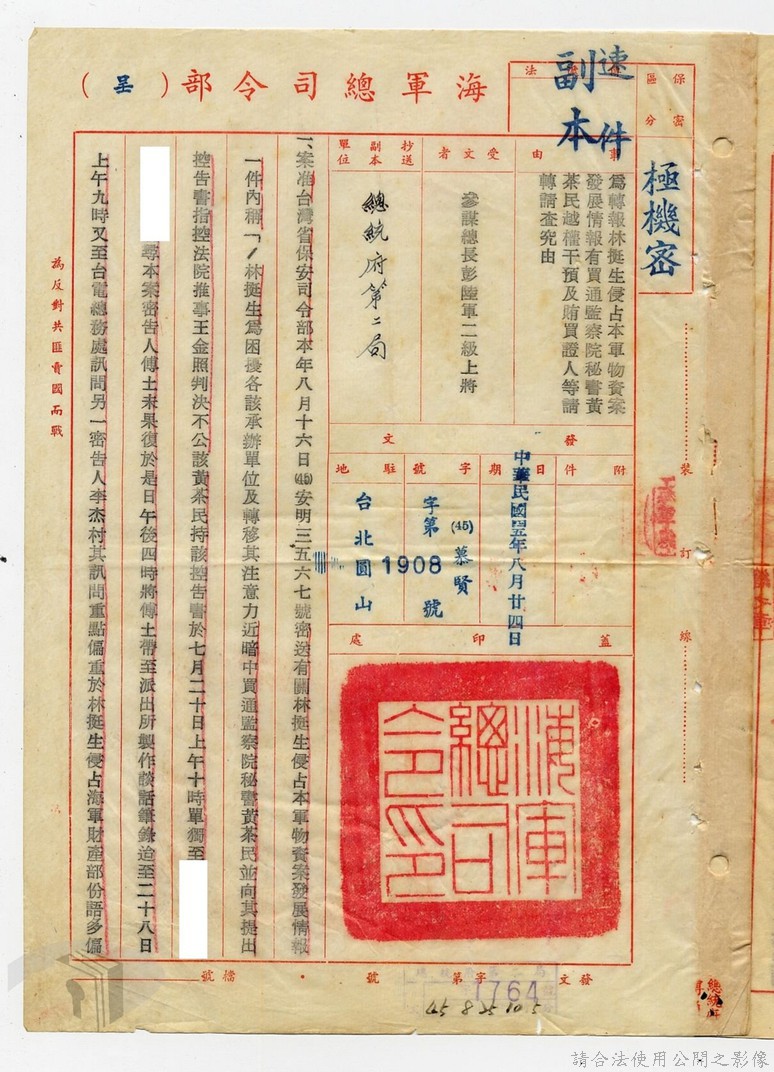 保密區分
極機密
速件
副本
海軍總司令部（呈）
事由
為轉報林挺生侵占本軍物資案
發展情報有買通監察院秘書黃
茶民越權干預及賄買證人等請
轉請查究由
受文者
參謀總長彭陸軍二級上將
抄送副本單位
總統府第二局
發文
附件
日期
中華民國四五年八月廿四日
字號
(45)慕賢
字第1908號
駐地
台北圓山
蓋印處
海軍總司令印
一、案准台灣省保安司令部本年八月十六日(45)安明三五六七號密送有關林挺生侵占本軍物資案發展情報
一件內稱「1林挺生為困擾各該承辦單位及轉移其注意力近暗中買通監察院秘書黃茶民並向其提出
控告書指控法院推事王金照判決不公該黃茶民持該控告書於七月二十日上午十時單獨至
尋本案密告人傅土未果復於是日午後四時將傅土帶至派出所製作談話筆錄迨至二十八日
上午九時又至台電總務處訊問另一密告人李杰村其訊問重點偏重於林挺生侵占海軍財產部份語多偏
為反對共匪賣國而戰
裝
訂
線
發文 字第 號
檔號
1764
45 8 25
總統府
請合法使用公開之影像